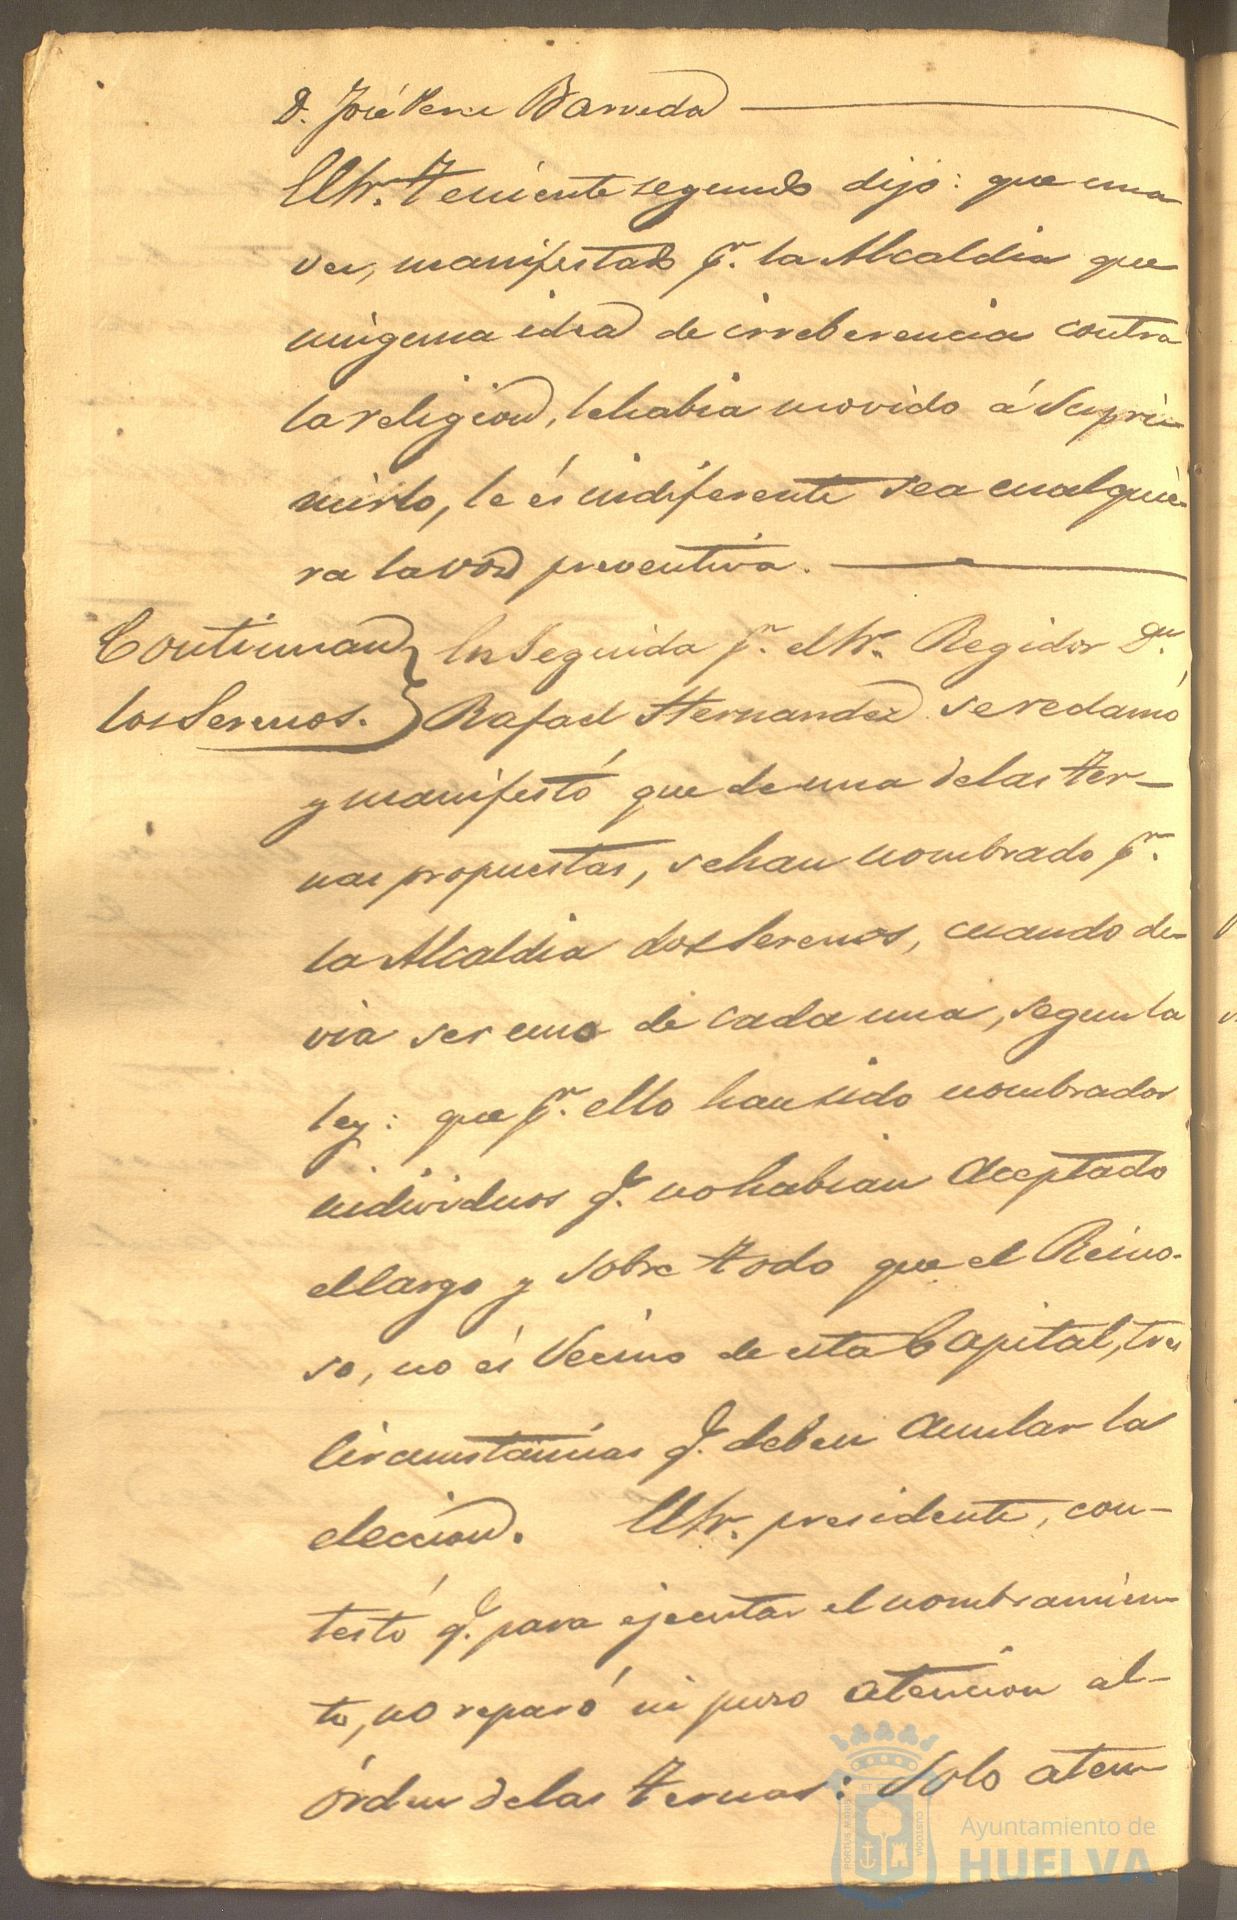 D. José Perez Barreda
El Sr. Teniente segundo dijo: que una
vez, manifestado pr. la Alcaldia que
ninguna idea de irreberencia contra
la religion, le habia movido á Supri-
mirlo, le és indiferente sea cualquie-
ra la voz preventiva.
Continuan
los Serenos.
En Seguida pr. el Sr. Regidor Dn.
Rafael Hernandez se reclamó
y manifestó que de una de las ter-
nas propuestas, se han nombrado pr.
la Alcaldia dos Serenos, cuando de-
via ser uno de cada una, segun la
ley: que pr. ello han sido nombrados
individuos q. no habian Aceptado
el Cargo y sobre todo que el Reino-
so, no és Vecino de esta Capital, tres
Circunstancias q. deben Anular la
elección. El Sr. presidente, con-
testó q. para ejecutar el nombramien-
to, no reparó ni puso atencion al
órden de las ternas: Solo aten
Ayuntamiento de
HUELVA
PORTUS MARIS ET TERRAE CUSTODIA